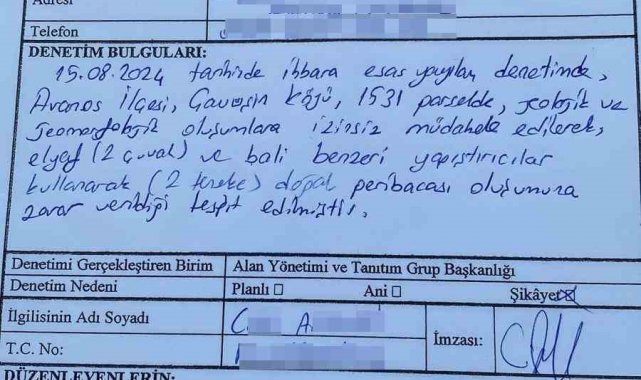 Adresi
Telefon
DENETİM BULGULARI:
15.08.2024 tarihinde ihbara esas yapılan denetimde,
Avanos İlçesi, Çavuşin Köyü, 1531 parselde, jeolojik ve
jeomorfolojik oluşumlara izinsiz müdahale edilerek,
elyaf (2 çuval) ve bali benzeri yapıştırıcılar
kullanarak (2 teneke) doğal peribacası oluşumuna
zarar verildiği tespit edilmiştir.
Denetimi Gerçekleştiren Birim Alan Yönetimi ve Tanıtım Grup Başkanlığı
Denetim Nedeni Planlı □ Ani □ Şikâyet ☒
İlgilisinin Adı Soyadı C A İmzası:
T.C. No:
DÜZENLEYENLERİN: